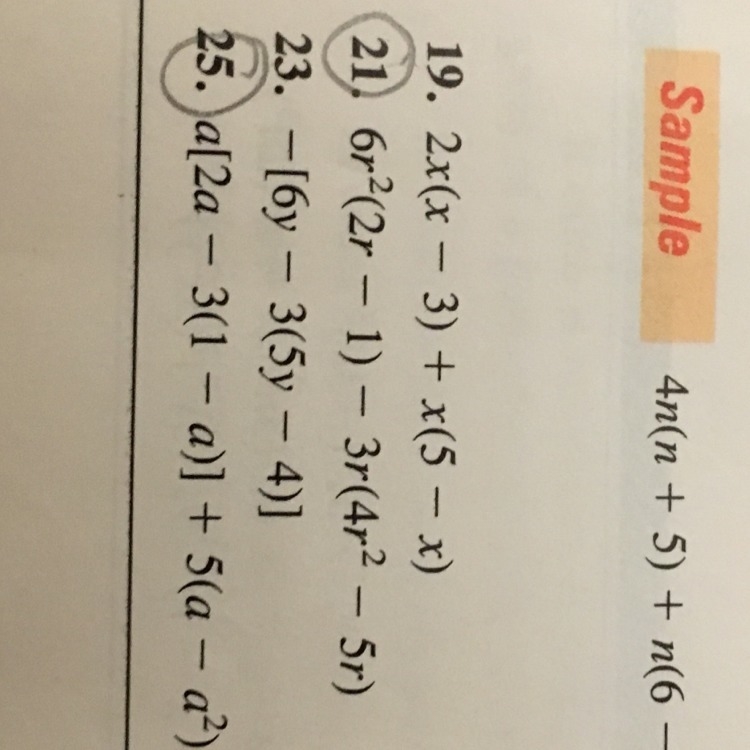 Sample 4n(n + 5) + n(6 −
19. 2x(x − 3) + x(5 − x)
21. 6r²(2r − 1) − 3r(4r² − 5r)
23. −[6y − 3(5y − 4)]
25. a[2a − 3(1 − a)] + 5(a − a²)